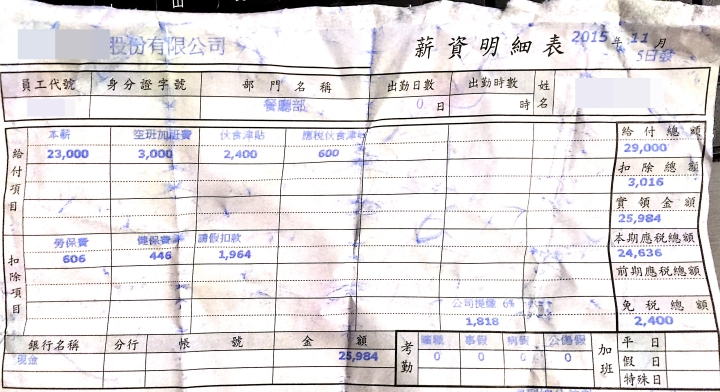 股份有限公司 薪資明細表 2015年 11月
5日發
員工代號 身分證字號 部門名稱 出勤日數 出勤時數 姓名
餐廳部 0日 時
給付項目 本薪 空班加班費 伙食津貼 應稅伙食津 給付總額
23,000 3,000 2,400 600 29,000
扣除總額
3,016
實領金額
25,984
扣除項目 勞保費 健保費 請假扣款 本期應稅總額
606 446 1,964 24,636
前期應稅總額
公司提繳 6% 免稅總額
1,818 2,400
銀行名稱 分行 帳號 金額 考勤 曠職 事假 病假 公傷假 加班 平日
現金 25,984 0 0 0 0 假日
特殊日